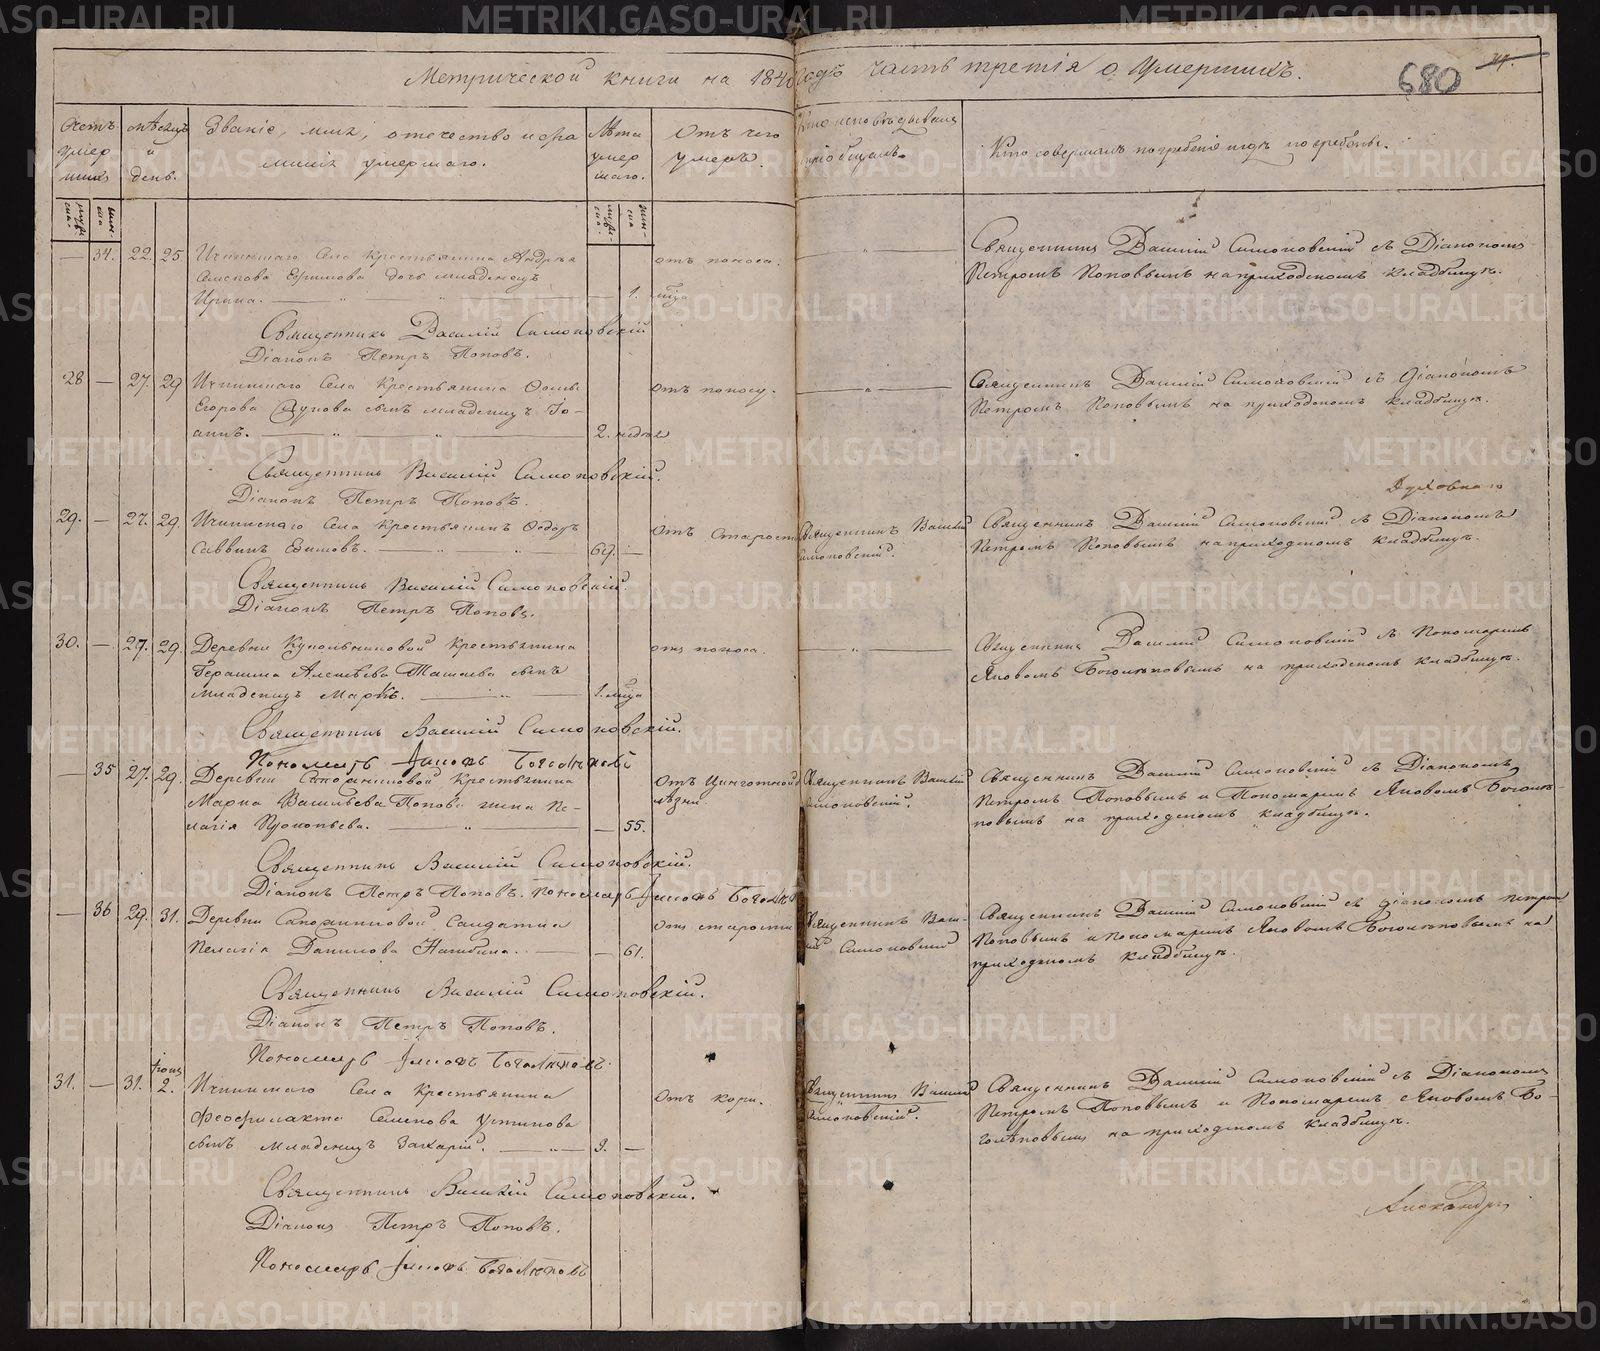 Метрической книги на 1840 годъ часть третія о умершихъ.
680
Счетъ умершихъ
мѣсяцъ и день.
Званіе, имя, отечество и фамилія умершаго.
Лѣта умершаго.
Отъ чего умеръ.
Кто исповѣдывалъ и пріобщалъ.
Кто совершалъ погребеніе и гдѣ погребены.
мужеска
женска
мужеска
женска
— 34. 22. 25 Ичкинскаго Села Крестьянина Андрея
Ефимова дочь младенецъ
Ирина. 1. мѣсяца
отъ поноса.
Священникъ Василій Симоновскій съ Діакономъ
Петромъ Поповымъ на приходскомъ кладбищѣ.
Священникъ Василій Симоновскій
Діаконъ Петръ Поповъ.
28 — 27. 29 Ичкинскаго Села Крестьянина Фомы
Егорова сынъ младенецъ Іо-
аннъ. 2. недѣль
отъ поносу.
Священникъ Василій Симоновскій съ Діакономъ
Петромъ Поповымъ на приходскомъ кладбищѣ.
Священникъ Василій Симоновскій.
Діаконъ Петръ Поповъ.
Духовнаго
29. — 27. 29. Ичкинскаго Села Крестьянинъ Ѳедоръ
Саввинъ Ефимовъ. 69. —
Отъ Старости
Священникъ Василій
Симоновскій.
Священникъ Василій Симоновскій съ Діакономъ
Петромъ Поповымъ на приходскомъ кладбищѣ.
Священникъ Василій Симоновскій.
Діаконъ Петръ Поповъ.
30. — 27. 29. Деревни Крестьянина
Герасима сынъ
младенецъ Маркъ. 1. мѣсяца
отъ поноса.
Священникъ Василій Симоновскій съ Пономаремъ
Яковомъ Боголѣповымъ на приходскомъ кладбищѣ.
Священникъ Василій Симоновскій.
Пономарь Іаковъ Боголѣповъ
— 35 27. 29. Деревни Крестьянина
Марка Васильева Попова жена Пе-
лагія Прокопьева. — 55.
Отъ Цинготной
Священникъ Василій
Симоновскій.
Священникъ Василій Симоновскій съ Діакономъ
Петромъ Поповымъ и Пономаремъ Яковомъ Боголѣ-
повымъ на приходскомъ кладбищѣ.
Священникъ Василій Симоновскій.
Діаконъ Петръ Поповъ. Пономарь Іаковъ Боголѣповъ
— 36 29. 31. Деревни Солдатка
Пелагія Данилова — 61.
Отъ старости
Священникъ Васи-
лій Симоновскій
Священникъ Василій Симоновскій съ діакономъ Петромъ
Поповымъ и Пономаремъ Яковомъ Боголѣповымъ на
приходскомъ кладбищѣ.
Священникъ Василій Симоновскій.
Діаконъ Петръ Поповъ.
Пономарь Іаковъ Боголѣповъ.
31. — 31. 2. Ичкинскаго Села Крестьянина
Феофилакта Семенова Устинова
сынъ младенецъ Захарій. —
Отъ кори.
Священникъ Василій
Симоновскій.
Священникъ Василій Симоновскій съ Діакономъ
Петромъ Поповымъ и Пономаремъ Яковомъ Бо-
голѣповымъ на приходскомъ кладбищѣ.
Священникъ Василій Симоновскій.
Діаконъ Петръ Поповъ.
Пономарь Іаковъ Боголѣповъ
METRIKI.GASO-URAL.RU